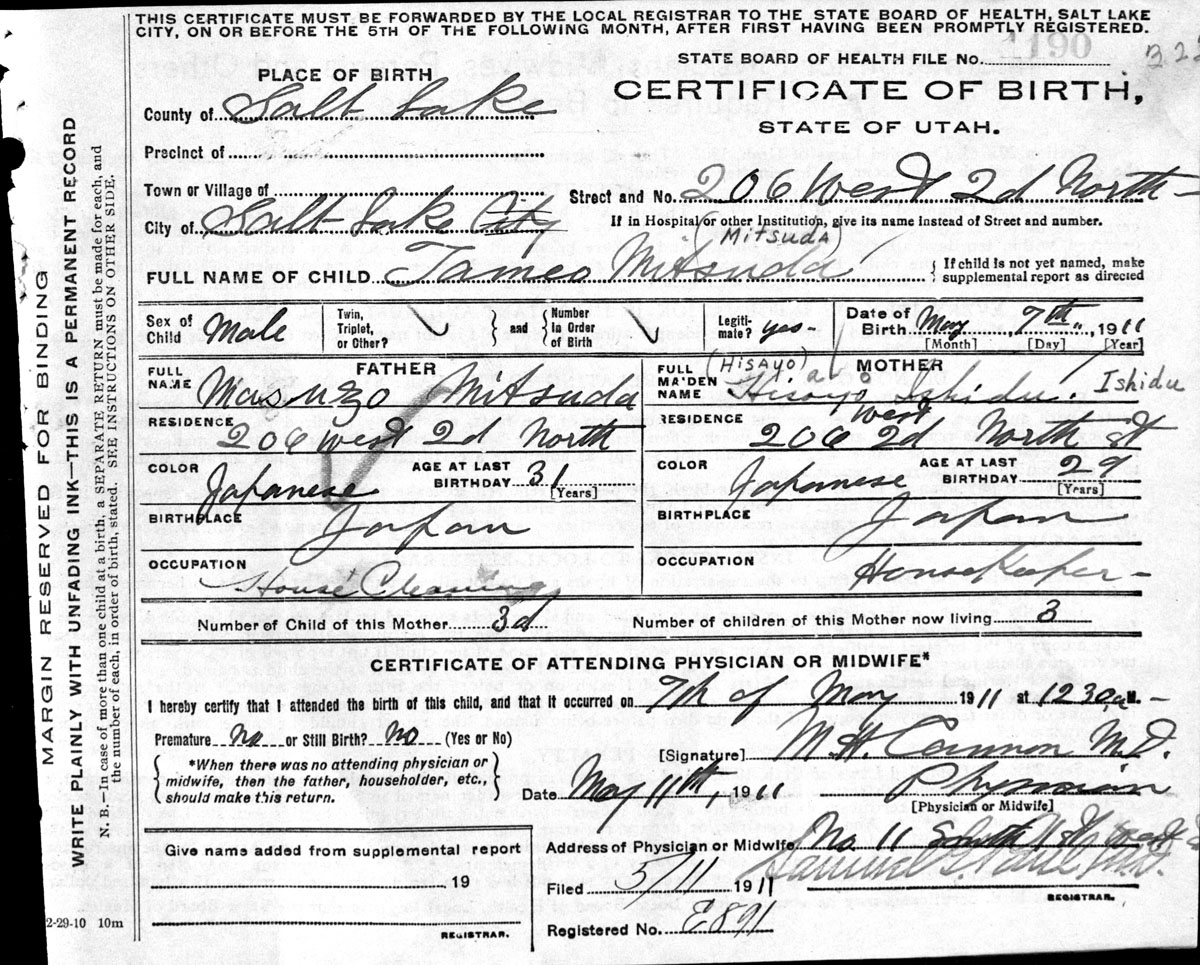 THIS CERTIFICATE MUST BE FORWARDED BY THE LOCAL REGISTRAR TO THE STATE BOARD OF HEALTH, SALT LAKE
CITY, ON OR BEFORE THE 5TH OF THE FOLLOWING MONTH, AFTER FIRST HAVING BEEN PROMPTLY REGISTERED.
1190
STATE BOARD OF HEALTH FILE No.
PLACE OF BIRTH
CERTIFICATE OF BIRTH,
STATE OF UTAH.
County of Salt Lake
Precinct of
Town or Village of
Street and No. 206 West 2d North
City of Salt Lake City
If in Hospital or other Institution, give its name instead of Street and number.
(Mitsuda)
FULL NAME OF CHILD Tameo Mitsuda
{ If child is not yet named, make
supplemental report as directed
Sex of Child Male
Twin, Triplet, or Other?
{ and }
Number in Order of Birth
Legiti- mate? yes
Date of Birth May 7th, 1911
[Month] [Day] [Year]
FATHER
FULL NAME Masuzo Mitsuda
RESIDENCE 206 West 2d North
COLOR Japanese
AGE AT LAST BIRTHDAY 31
[Years]
BIRTHPLACE Japan
OCCUPATION House Cleaning
MOTHER
(Hisayo)
FULL MAIDEN NAME Hisayo Ishidu Ishidu
RESIDENCE 206 West 2d North St
COLOR Japanese
AGE AT LAST BIRTHDAY 29
[Years]
BIRTHPLACE Japan
OCCUPATION Housekeeper
Number of Child of this Mother 3d
Number of children of this Mother now living 3
CERTIFICATE OF ATTENDING PHYSICIAN OR MIDWIFE*
I hereby certify that I attended the birth of this child, and that it occurred on 7th of May 1911 at 1230 a M.
Premature No or Still Birth? No (Yes or No)
{ *When there was no attending physician or
midwife, then the father, householder, etc.,
should make this return. }
[Signature] M. H. Cannon M.D.
Date May 11th, 1911
Physician
[Physician or Midwife]
Give name added from supplemental report
19
REGISTRAR.
Address of Physician or Midwife No. 11 South
Filed 5/11 1911
Samuel G. Paul M.D.
REGISTRAR.
Registered No. E891
2-29-10 10m
MARGIN RESERVED FOR BINDING
WRITE PLAINLY WITH UNFADING INK—THIS IS A PERMANENT RECORD
N. B.—In case of more than one child at a birth, a SEPARATE RETURN must be made for each, and
the number of each, in order of birth, stated. SEE INSTRUCTIONS ON OTHER SIDE.